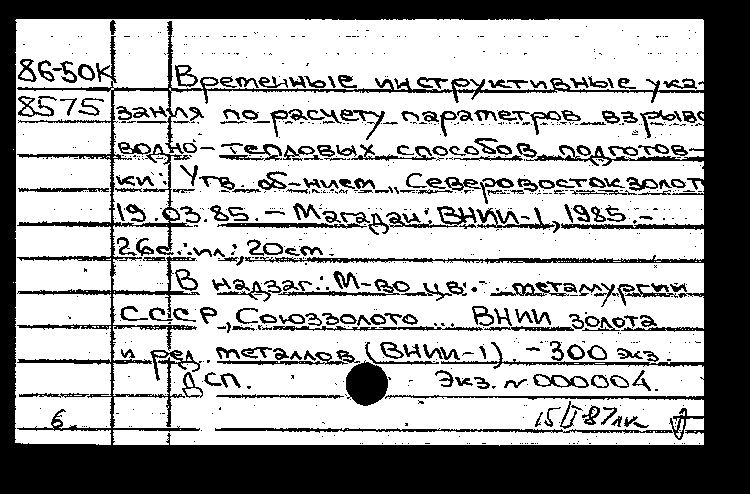 86-50К Временные инструктивные ука-
8575 зания по расчету параметров взрыво
водно-тепловых способов подготов-
ки: Утв. об-нием „Северовостокзолот
19.03.85. - Магадан: ВНИИ-1, 1985. -
26с.: ил.; 20см.
В надзаг.: М-во цв. металлургии
СССР, Союззолото ... ВНИИ золота
и ред. металлов (ВНИИ-1). - 300 экз.
ДСП. Экз. № 000004.
6. 15/II-87